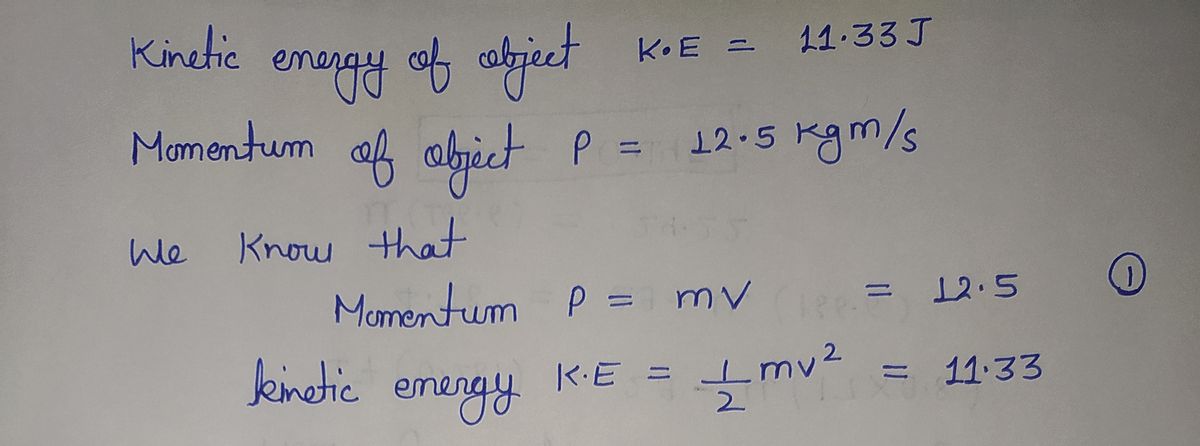 Kinetic energy of object K.E = 11.33 J
Momentum of object P = 12.5 kgm/s
We Know that
Momentum P = mv = 12.5 ①
kinetic energy K.E = 1/2 mv² = 11.33